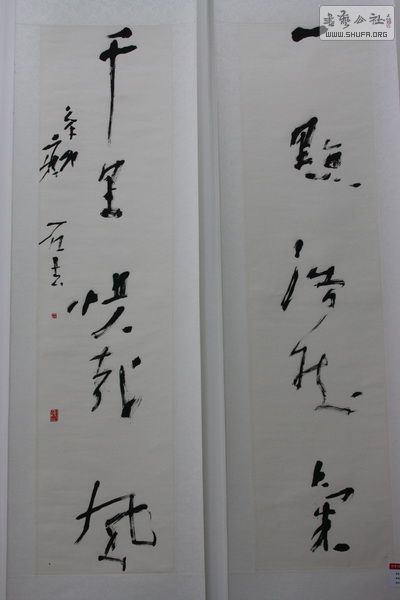 一點浩然氣
千里快哉風
書藝公社
WWW.SHUFA.ORG